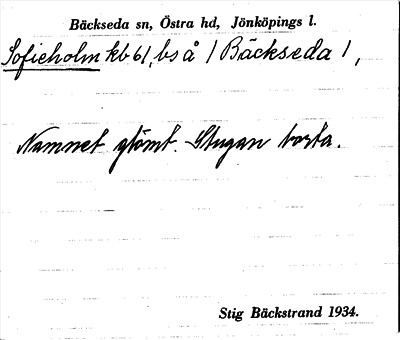 Bäckseda sn, Östra hd, Jönköpings l.
Sofieholm kb 61, bs å / Bäckseda 1,
Namnet glömt. Stugan borta.
Stig Bäckstrand 1934.